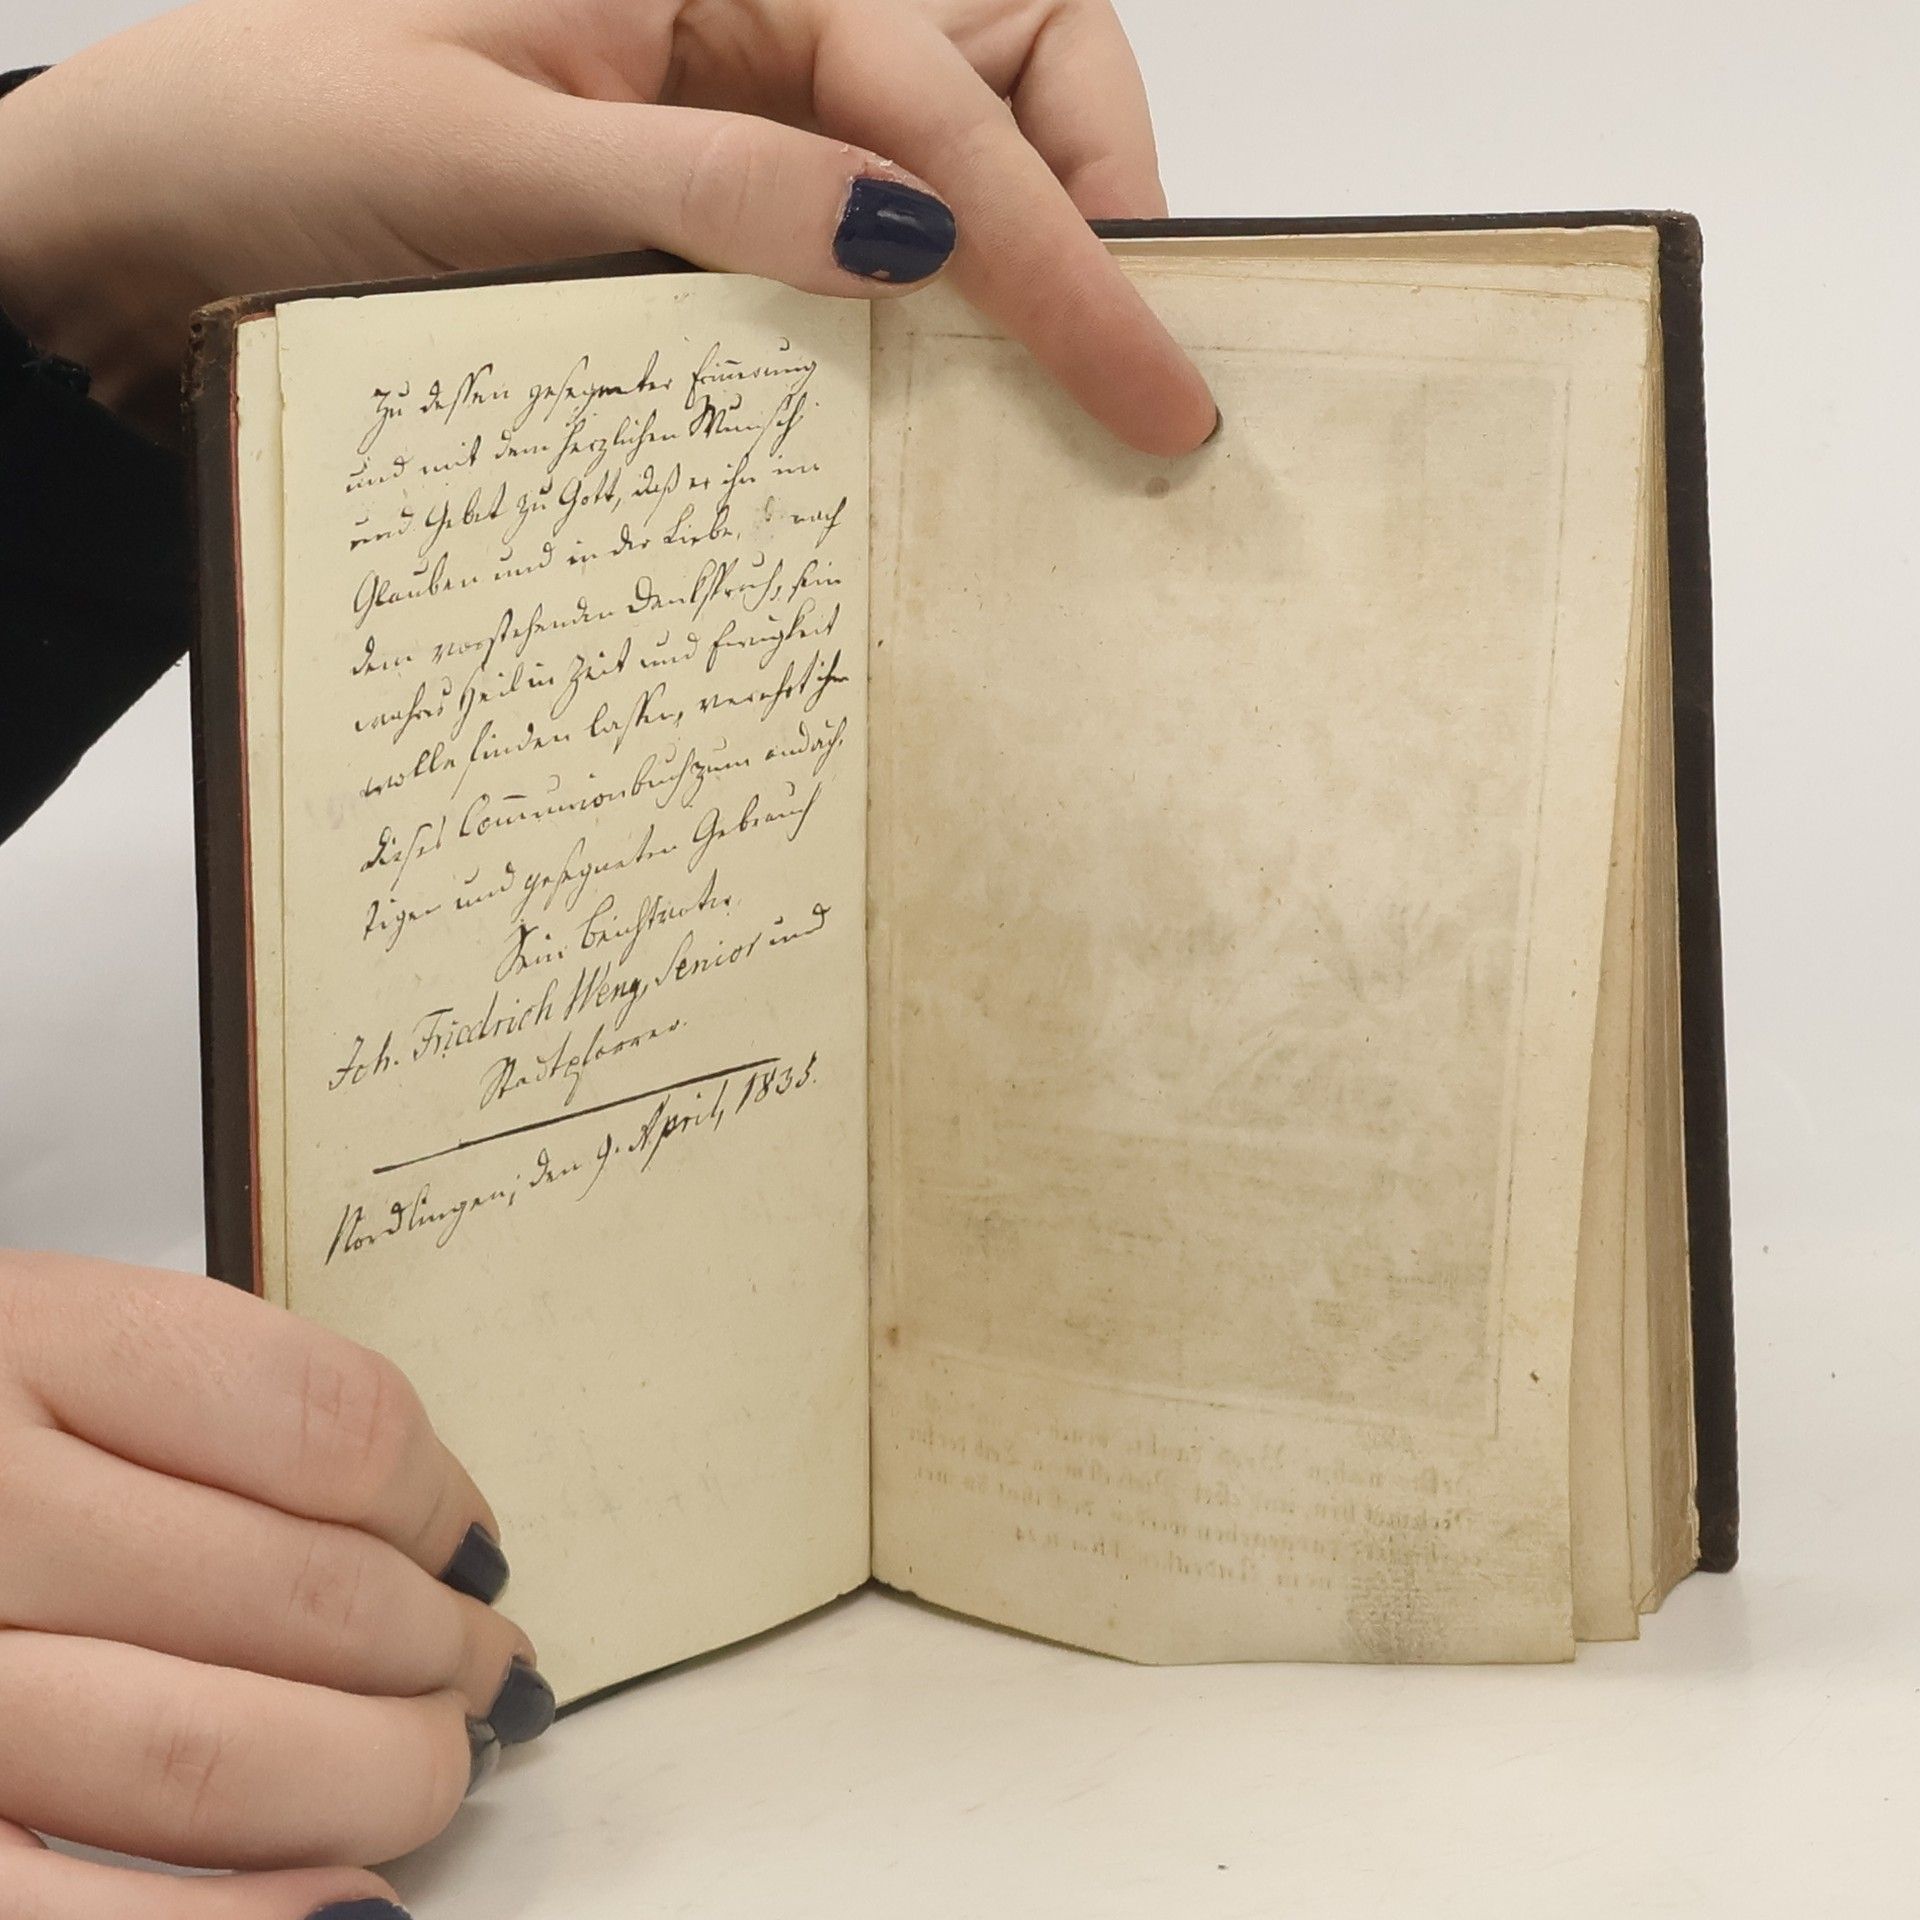 Zu dessen gesegneter Erinnerung
und mit dem herzlichen Wunsch
und Gebet zu Gott, daß er ihn im
Glauben und in der Liebe, nach
dem vorstehenden Denkspruch, sein
wahres Heil in Zeit und Ewigkeit
wolle finden lassen, verehrt ihm
dieses Communionbuch zum andäch-
tigen und gesegneten Gebrauch
Sein Beichtvater
Joh. Friedrich Weng, Senior und
Stadtpfarrer.
Nördlingen, den 9. April, 1835.